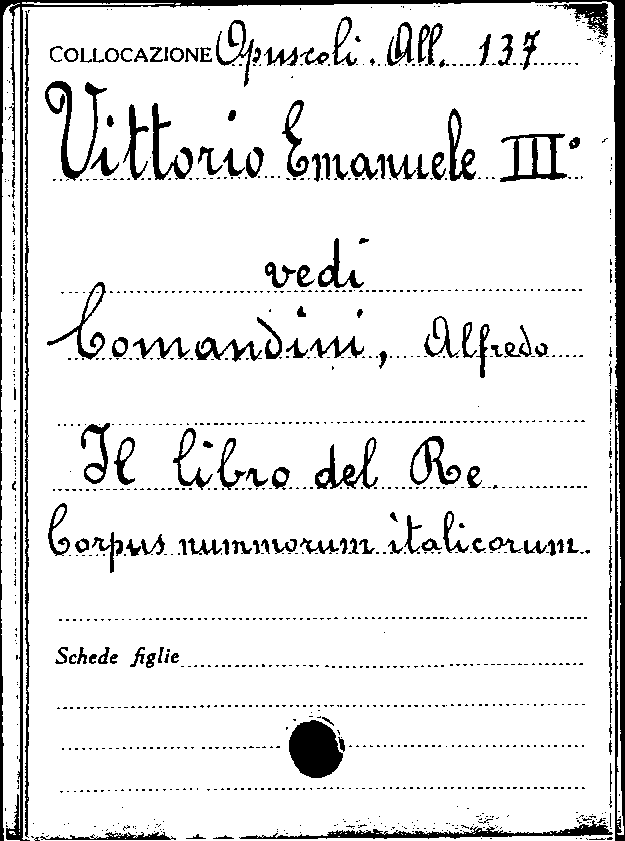 COLLOCAZIONE Opuscoli. All. 137
Vittorio Emanuele III°
vedi
Comandini, Alfredo
Il libro del Re.
Corpus nummorum italicorum.
Schede figlie